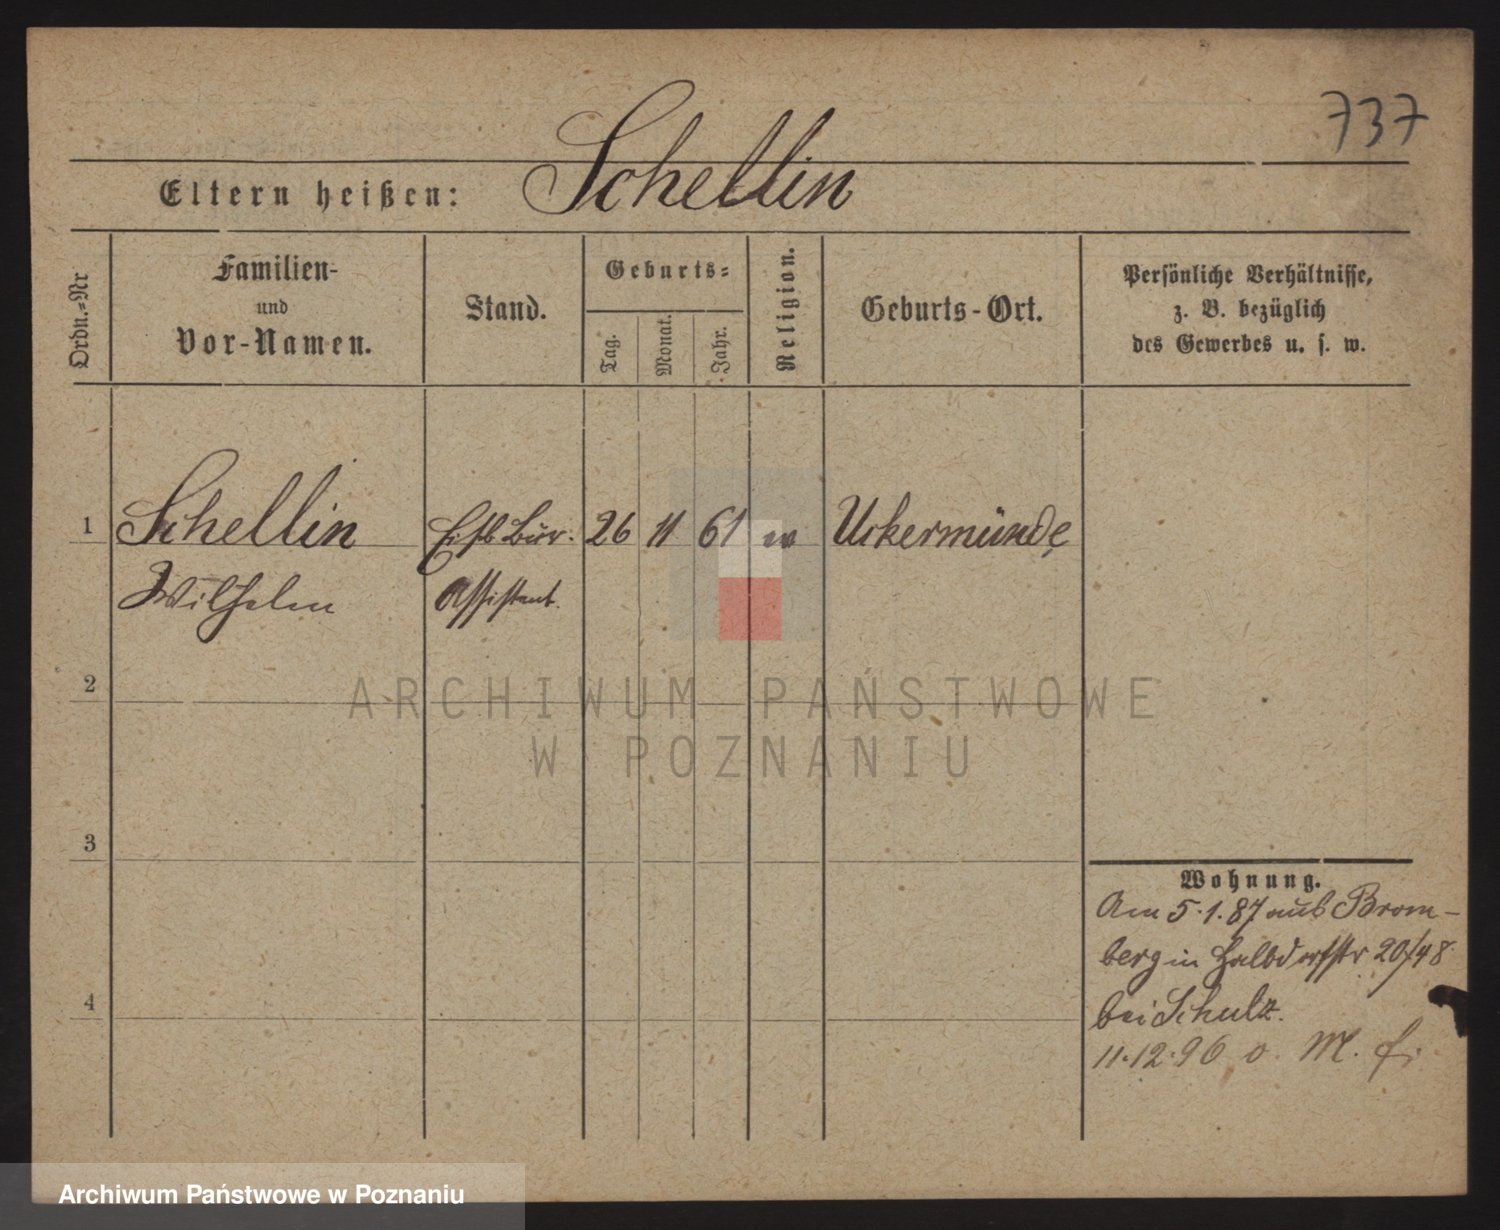 737
Schellin
Eltern heißen:
Ordn.=Nr
Familien-
und
Vor-Namen.
Stand.
Geburts=
Tag.
Monat.
Jahr.
Religion.
Geburts-Ort.
Persönliche Verhältnisse,
z. B. bezüglich
des Gewerbes u. s. w.
1
Schellin
Eisb Bür.
26
11
61
ev
Uckermünde
Wilhelm
Assistent.
2
ARCHIWUM PAŃSTWOWE
W POZNANIU
3
Wohnung.
Am 5.1.87 aus Brom-
berg in Halbdorfstr 20/48
4
bei Schulz.
11.12.96 o. M.
Archiwum Państwowe w Poznaniu